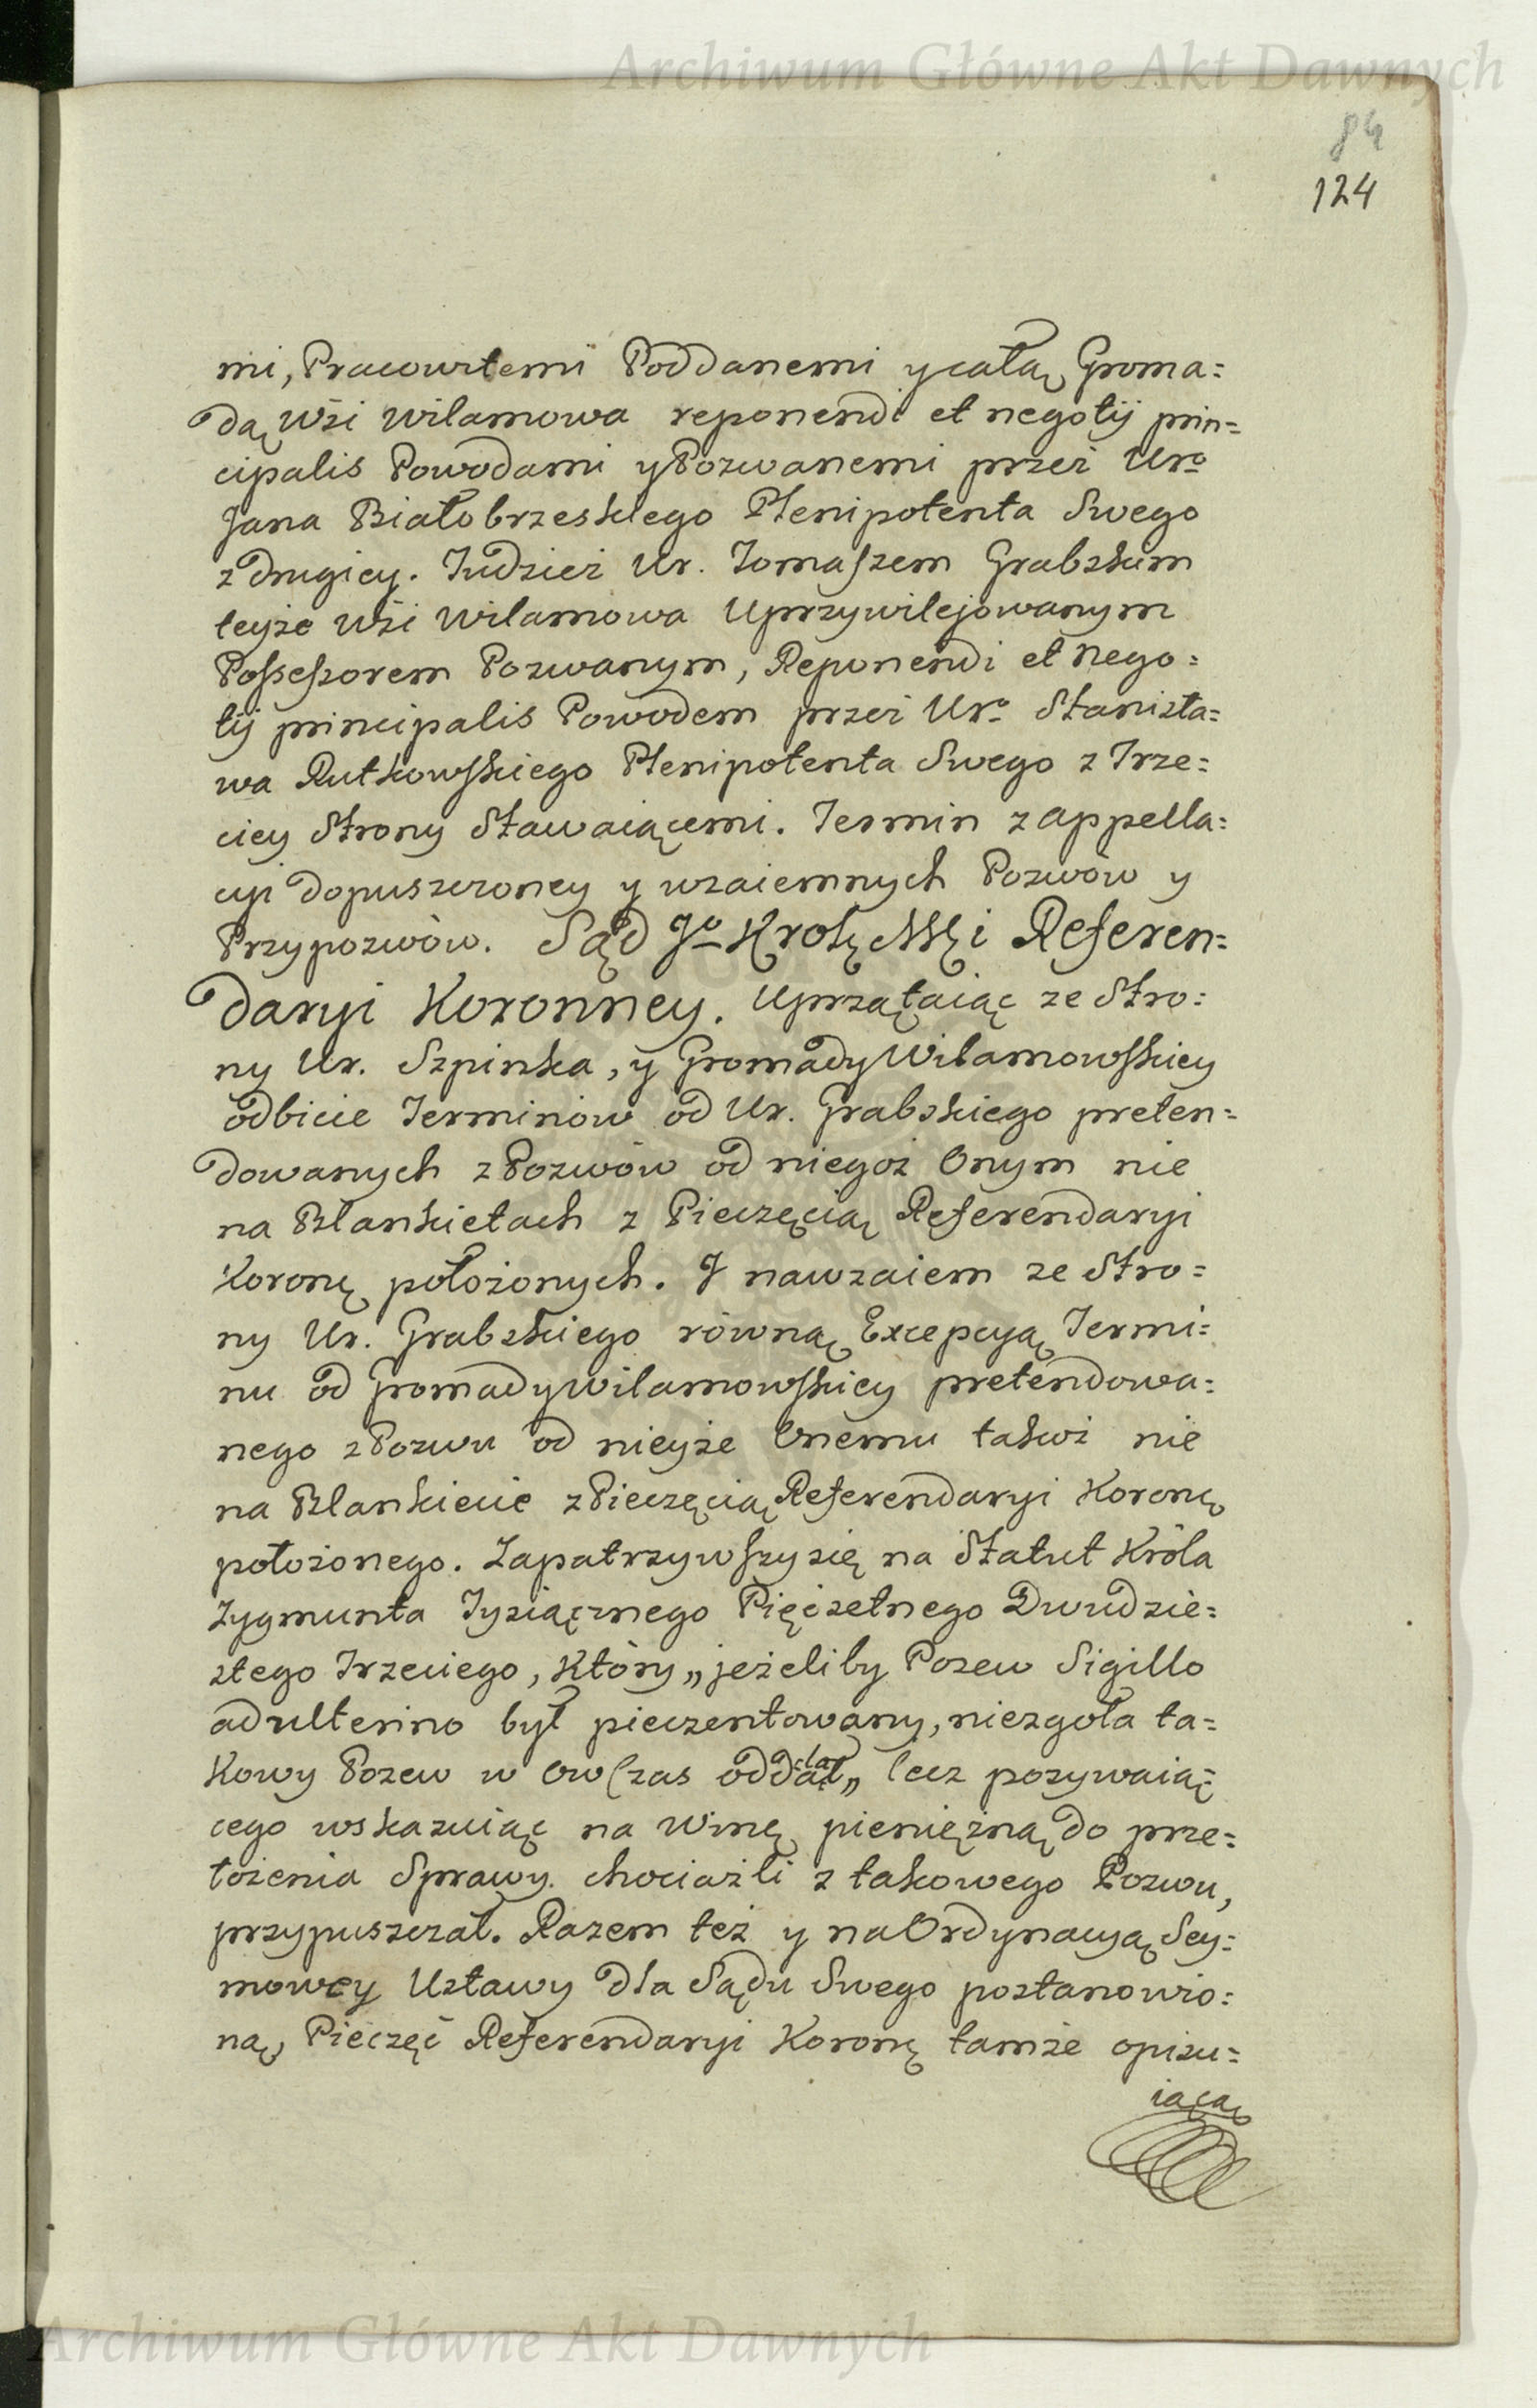 Archiwum Główne Akt Dawnych
84
124
mi, Pracowitemi Poddanemi y całą Groma=
dą Wsi Wilamowa reponendi et negotij prin=
cipalis Powodami y Pozwanemi przez Uro
Jana Białobrzeskiego Plenipotenta Swego
z drugiey. Tudzież Ur. Tomaszem Grabskim
teyże Wsi Wilamowa Uprzywilejowanym
Possessorem Pozwanym, Reponendi et nego=
tij principalis Powodem przez Uro Stanisła=
wa Rutkowskiego Plenipotenta Swego z Trze=
ciey Strony Stawaiącemi. Termin z appella=
cyi dopuszczoney y wzaiemnych Pozwów y
Przypozwów. Sąd Jo Krolę Mſę i Referen=
daryi Koronney. Uprzątaiąc ze Stro=
ny Ur. Szpinka, y Gromady Wilamowskiey
odbicie Terminow od Ur. Grabskiego preten=
dowanych z Pozwów od niegoż Onym nie
na Blankietach z Pieczęcią Referendaryi
Koronę położonych. J nawzaiem ze Stro=
ny Ur. Grabskiego równą Excepcyą Termi=
nu od Gromady Wilamowskiey pretendowa=
nego z Pozwu od nieyże Onemu takoż nie
na Blankiecie z Pieczęcią Referendaryi Koronę
położonego. Zapatrzywszy się na Statut Króla
Zygmunta Tysiącznego Pięćsetnego Dwudzie=
stego Trzeciego, Który „jeżeliby Pozew Sigillo
adulterino był pieczentowany, niezgoła ta=
Kowy Pozew w Owczas oddalał„ lecz pozywaią=
cego wskazuiąc na Winę pieniężną do prze=
łożenia Sprawy. chociażli z takowego Pozwu,
przypuszczał. Razem też y na Ordynacyą Sey=
mowey Ustawy dla Sądu Swego postanowio=
ną, Pieczęć Referendaryi Koronę tamże opisu=
iącą
Archiwum Główne Akt Dawnych